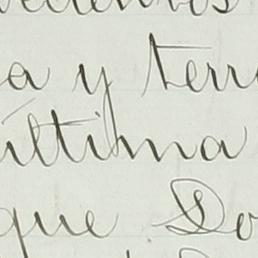 a y terr
última
que Do